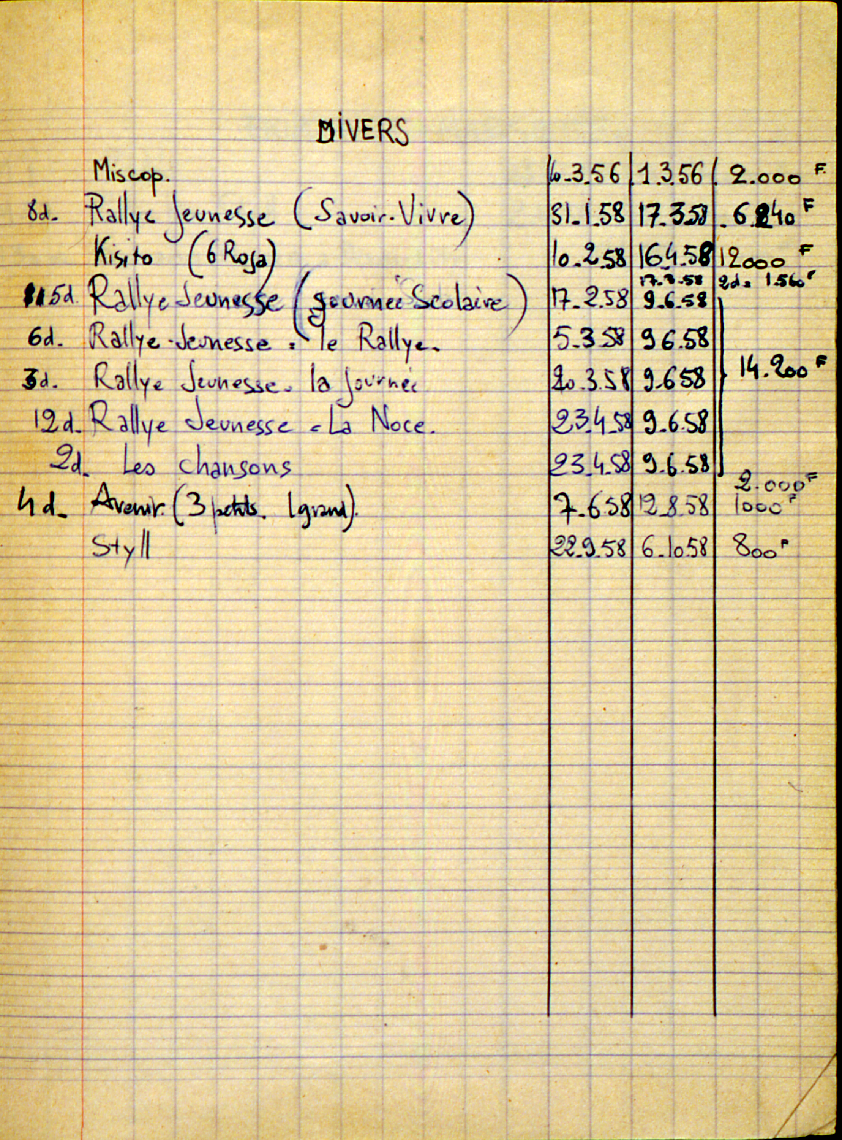 DIVERS
Miscop. 10.3.56 1.3.56 2.000 F
8d. Rallye Jeunesse (Savoir-Vivre) 31.1.58 17.3.58 6.240 F
Kisito (6 Roja) 10.2.58 16.4.58 12000 F
17.3.58 2d = 1.560 F
5d. Rallye Jeunesse (journée Scolaire) 17.2.58 9.6.58
6d. Rallye-Jeunesse = le Rallye. 5.3.58 9.6.58
3d. Rallye Jeunesse = la journée 20.3.58 9.6.58 14.200 F
12d. Rallye Jeunesse = La Noce. 23.4.58 9.6.58
2d. Les chansons 23.4.58 9.6.58
2.000 F
4d. Avenir (3 petits. 1 grand). 7.6.58 12.8.58 1000 F
Styll 22.9.58 6.10.58 800 F